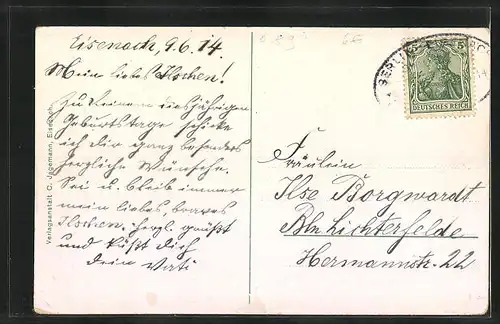 Eisenach, 9.6.14.
Mein liebes Ilschen!
Zu Deinem diesjährigen
Geburtstage schicke
ich Dir ganz besonders
herzliche Wünsche.
Sei u. bleib immer
mein liebes, braves
Ilschen. Herzl. grüßt
und küßt Dich
Dein Vati
Verlagsanstalt C. Jagemann, Eisenach.
5
DEUTSCHES REICH
BERLIN
Fräulein
Ilse Borgwardt
Bln Lichterfelde
Hermannstr. 22